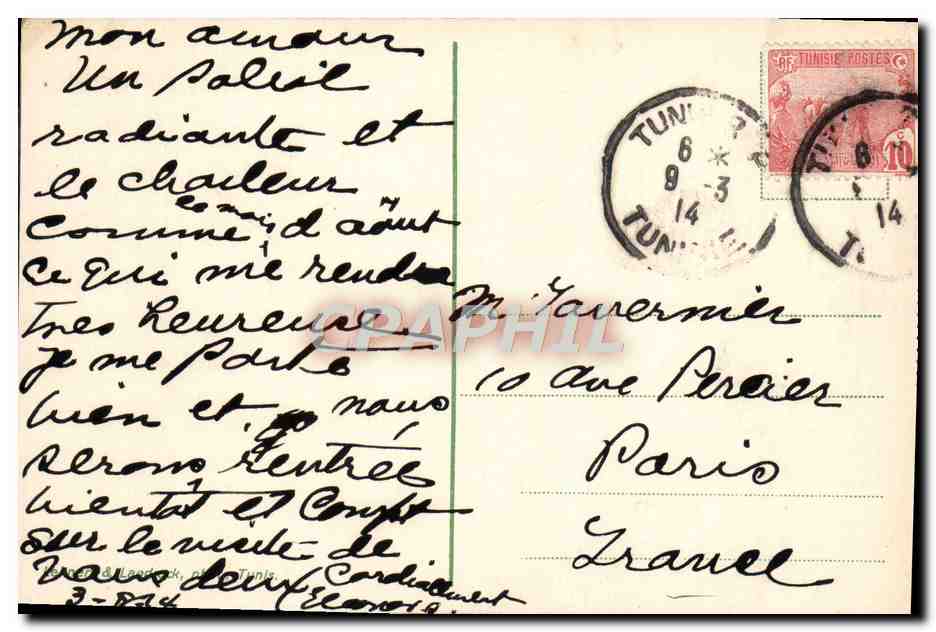 mon amour
Un soleil
radiante et
le chaleur
comme le mai d'août
ce qui me rendre
tres heureuse.
je me porte
bien et nous
serons rentrée
bientôt et compt
sur la visite de
vous deux Cordiallement
3-8-14 Eleanore.
Lehnert & Landrock, ph. Tunis.
TUNISIE POSTES
RF
10
TUNIS
6 *
9 -3
14
TUNISIE
6
14
M. Tavernier
10 ave Percier
Paris
France
CPAPHIL